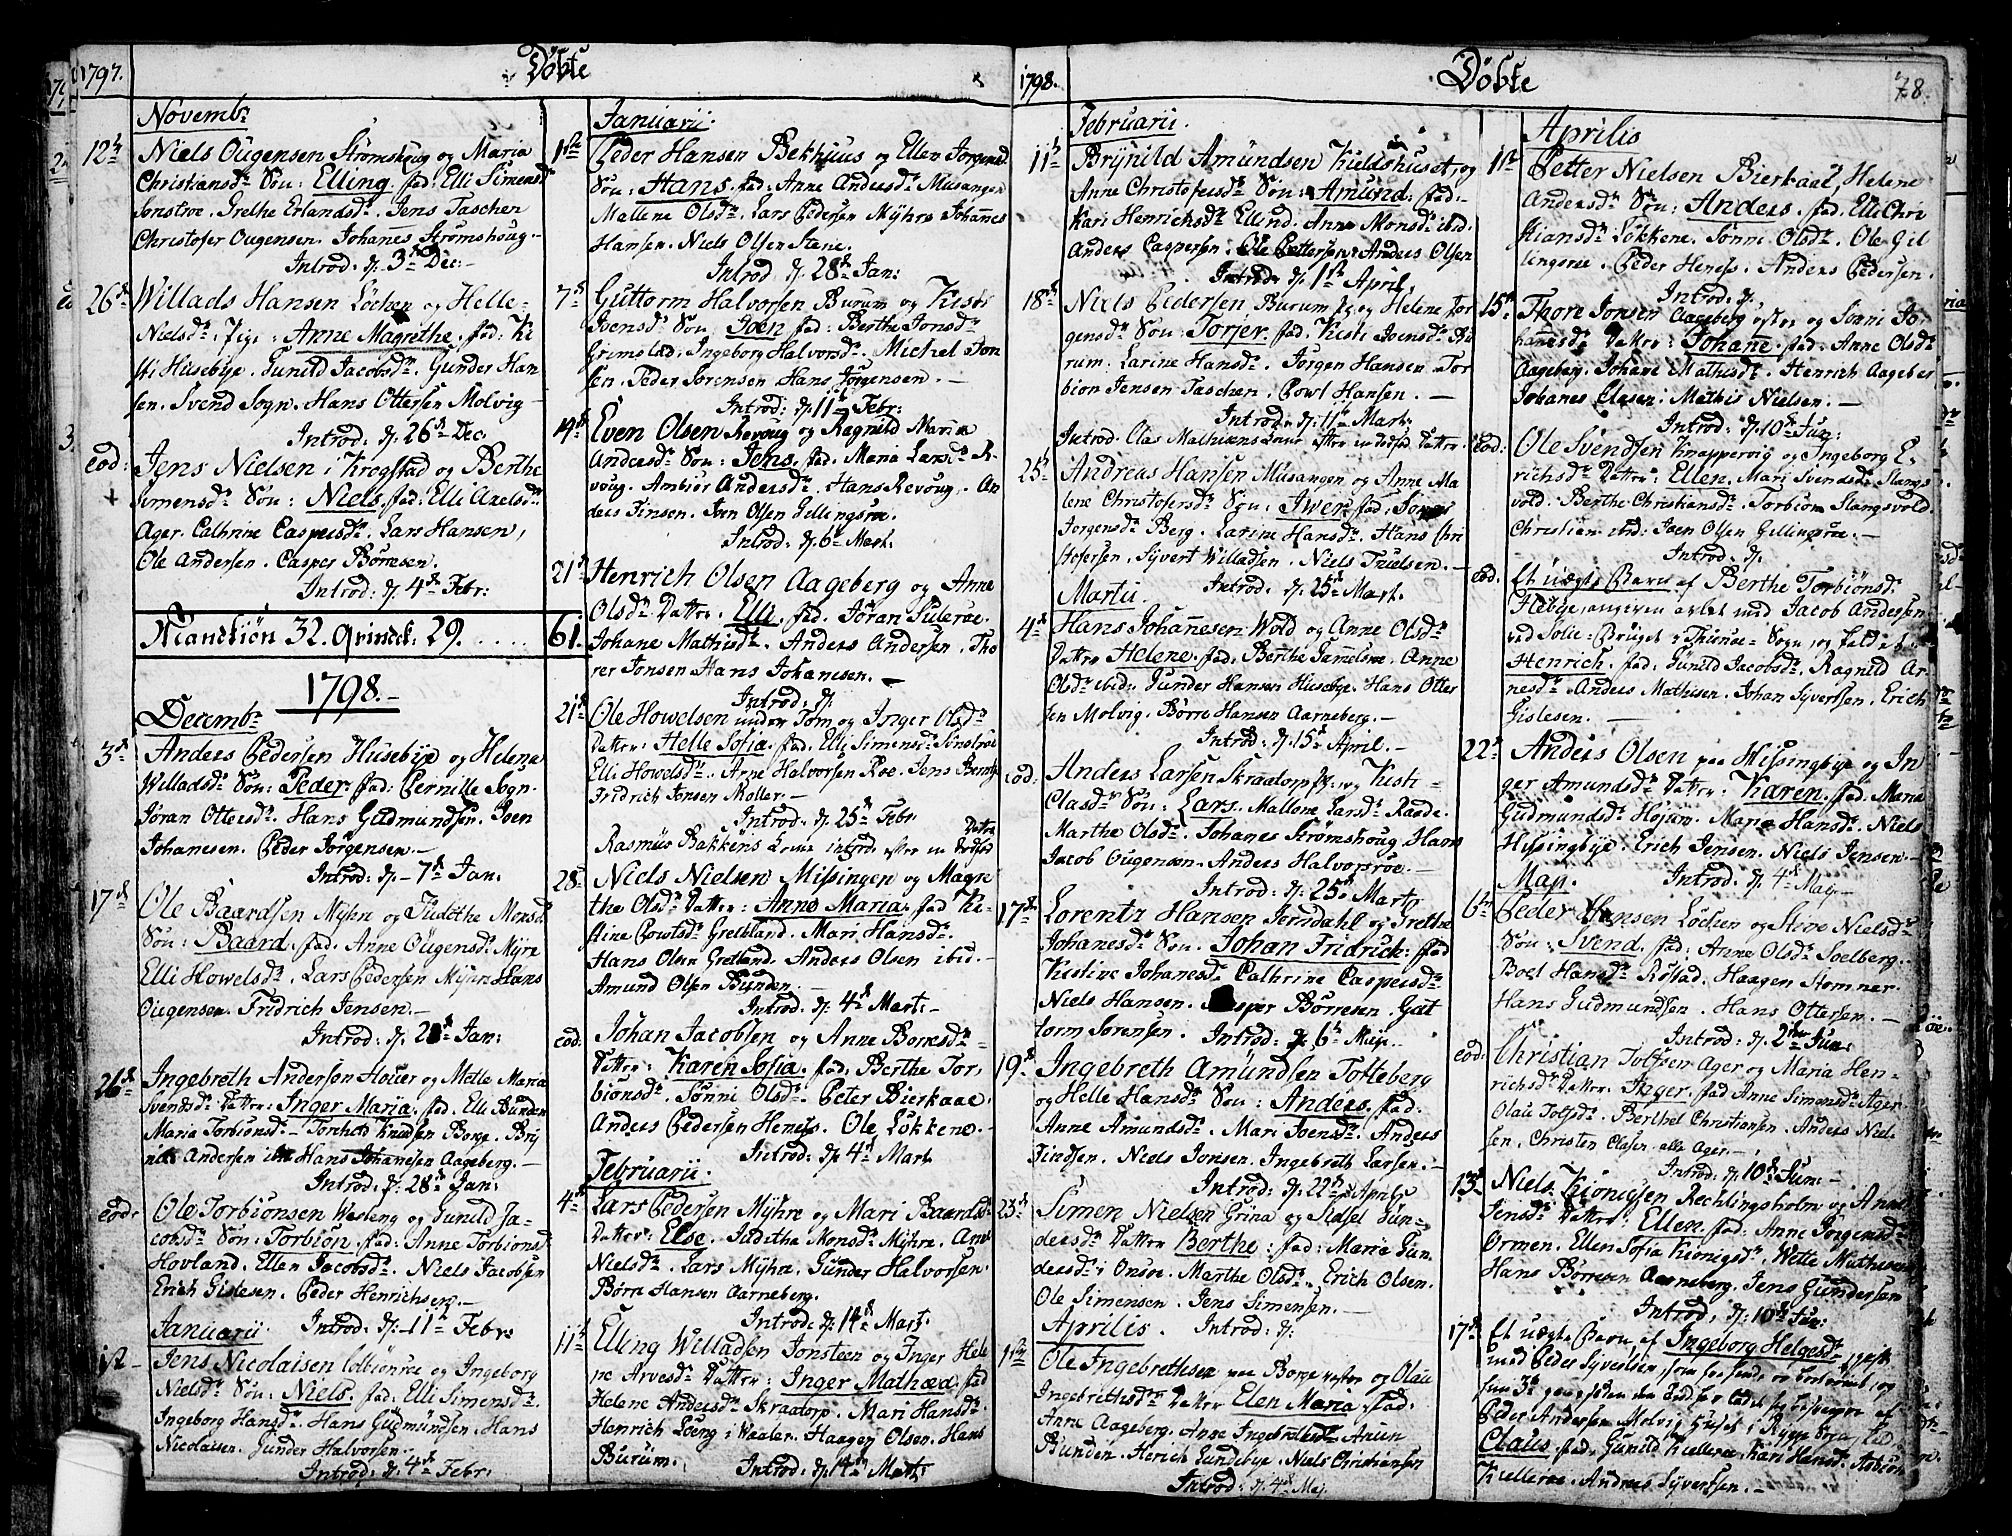 1797.
Döbte
Novembr
12te Niels Ougensen Strömshoug og Maria
Christiansdr Sön: Elling. fad: Elli Simensdr
Sonstroe. Grethe Erlandsdr. Jens Taschen
Christofer Ougensen. Johanes Strömshoug.
Introd: d. 3die Dec:
26de Willads Hansen Löchen og Helle
Nielsdr. Pige: Anne Magrethe. fad: Ki
sti Husebye. Gunild Jacobsdr. Gunder Han
sen. Svend Sogn. Hans Ottersen Molvig
Introd: d. 26de Dec.
eod: Jens Nielsen i Krogstad og Berthe
Simensdr Sön: Niels. fad: Elli Axelsdr
Ager. Cathrine Caspersdr. Lars Hansen,
Ole Andersen. Casper Börresen.
Introd: d. 4de Febr:
Mandkiön 32. Qvindek: 29. 61.
1798.
Decembr
3de Anders Pedersen Husebye og Helene
Willadsdr Sön: Peder. fad: Pernille Sogn.
Jöran Ottersdr. Hans Gudmundsen. Joen
Johanesen. Peder Jörgensen.
Introd: d. 7de Jan:
17de Ole Baardsen Myhre og Judithe Monsdr
Sön: Baard. fad: Anne Ougensdr Myre
Elli Howelsdr. Lars Pedersen Myhre Hans
Ougensen. Fridrich Jensen.
Introd: d. 28de Jan:
26de Ingebreth Andersen Houer og Mette Maria
Svendsdr Datter: Inger Maria. fad. Elli Bunden
Maria Torbionsdr. Knudsen Borge. Bry
Andersen Hans Johanesen Aageberg.
Introd: d. 28de Jan:
eod: Ole Torbionsen Westeng og Gunild Ja
cobsdr Sön: Torbiön. fad: Anne Torbionsdr
Hovland. Ellen Jacobsdr. Niels Jacobsen
Erich Gislesen. Peder Henrichsen.
Januarii Introd: d. 11te Febr:
1ste Jens Nicolaisen og Ingeborg
Nielsdr Sön: Niels. fad: Elli Simensdr.
Ingeborg Hansdr. Hans Gudmundsen. Hans
Nicolaisen. Gunder Halvorsen.
Introd: d. 4de Febr:
Januarii.
1ste Peder Hansen Bekhuus og Ellen Jörgensdr
Sön: Hans. fad: Anne Andersdr Musangen
Mallene Olsdr. Lars Pedersen Myhre Johanes
Hansen. Niels Olsen Stene.
Introd d. 28de Jan:
7de Guttorm Halvorsen Burum og Kisti
Joensdr Sön: Joen. fad: Berthe Jonsdr
Grimstad. Ingeborg Halvorsdr. Michel Jon
sen. Peder Sörensen Hans Jörgensen.
Introd: d. 11te Febr:
14de Even Olsen Revoug og Ragnild Maria
Andersdr Sön: Jens. fad. Maria Larsdr Re
voug. Ambiör Andersdr. Hans Revoug. An
ders Finsen. Iven Olsen Gellingsröe.
Introd: d. 6te Mart.
21de Henrich Olsen Aageberg og Anne
Olsdr. Datter. Elli. fad. Jöran Suleröe.
Johane Mathisdr. Anders Andersen. Tho
rer Jonsen Hans Johanesen.
Introd: d.
21de Ole Howelsen under Tom og Inger Olsdr
Datter: Helle Sofia. fad. Elli Simensdr Sonstroe
Elli Howelsdr. Anne Halvorsen Roe. Jens
Fridrich Jensen Moller.
Introd: d. 25de Febr
Rasmus Bakkens Kone introd. efter en Dödföd Datter
28de Niels Nielsen Missingen og Magre
the Olsdr Datter: Anne Maria. fad Ki
stine Powlsdr. Gretland. Mari Hansdr.
Hans Olsen Gretland. Anders Olsen ibid.
Amund Olsen Bunden.
Introd: d. 4de Mart.
eod: Johan Jacobsen og Anne Börresdr
Datter: Karen Sofia. fad. Berthe Tor
bionsdr. Sönni Olsdr. Peter Bierkaae.
Anders Pedersen Heness. Ole Lökkene.
Introd: d. 4de Mart
Februarii.
4de Lars Pedersen Myhre og Mari Baardsdr
Datter: Else. Juditha Monsdr. Myhre. Anne
Nielsdr. Lars Myhre. Gunder Halvorsen.
Börre Hansen Aarneberg.
Introd: d. 14de Mart.
11te Elling Willadsen Jonsteen og Inger Hele
ne Arvesdr Datter: Inger Mathea. fad
Helene Andersdr Skraatorp. Mari Hansdr.
Henrich Loeng. Waaler. Haagen Olsen. Hans
Burum. Introd: d. 14de Mart
1798.
Döbte
78.
Februarii.
11te Brynild Amundsen Kieldshuset, og
Anne Christofersdr Sön: Amund. fad:
Kari Henrichsdr Ellind: Anne Monsdr ibid.
Anders Caspersen. Ole Pettersen. Anders Olsen
Introd: d. 1ste April.
18de Niels Pedersen Burum og Helene Jör
gensdr Sön: Torjer. fad. Kisti Joensdr Bu
rum. Larine Hansdr. Jörgen Hansen. Tor
bion Jensen Taschen. Powl Hansen.
Introd: d. 11te Mart.
Introd. Olas Mathiæns Kone efter en Dödföd Datter.
25de Andreas Hansen Musangen og Anne Ma
lene Christofersdr. Sön: Iwer. fad.
Jorgensdr Berg. Larine Hansdr. Hans Chri
stofersen. Syvert Willadsen. Niels Truelsen.
Martii. Introd: d. 25de Mart.
4de Hans Johanesen Wold og Anne Olsdr
Datter Helene. fad. Berthe Anne
Olsdr ibid: Gunder Hansen Husebye. Hans Otter
sen Molvig. Börre Hansen Aarneberg.
Introd: d. 15de April.
eod: Anders Larsen Skraatorp og Kisti
Clasdr Sön: Lars. Mallene Larsdr. Raade.
Marthe Olsdr. Johanes Strömshoug. Hans
Jacob Ougensen. Anders Halvorsröe.
Introd: d. 25de Marty
17de Lorentz Hansen Jonsdahl og Grethe
Johanesdr Sön: Johan Fridrick. fad
Kistine Johanesdr. Cathrine Caspersdr.
Niels Hansen. Casper Börresen. Gut
torm Sörensen. Introd: d. 6te Maji.
19de Ingebreth Amundsen Totteberg
og Helle Hansdr Sön: Anders. fad:
Anne Amundsdr. Mari Joensdr. Anders
Findsen. Niels Jonsen. Ingebreth Larsen.
Introd: d. 22de Aprilis
25de Simen Nielsen Grina og Sidsel Gun
dersdr Datter Berthe. fad: Maria Gun
dersdr i Onsö. Marthe Olsdr. Erich Olsen.
Ole Simensen. Jens Simensen.
Aprilis. Introd: d:
1ste Ole Ingebrethsen paa Borge og Olau
Ingebrethsdr Datter Elen Maria. fad:
Anne Aageberg. Anne Ingebrethsdr
Bunden. Herich Lundebye. Niels Christiansen
Introd: d. 4de Maj
Aprilis
1ste Petter Nielsen Bierkaae, Helene
Andersdr Sön: Anders. fad. Elli Chri
stiansdr Lökkene. Sönni Olsdr. Ole Gil
lingröe. Peder Heness. Anders Pedersen.
Introd: d.
15de Thore Jonsen Aageberg og Sönni Jo
hanesdr Datter: Johane. fad. Anne Olsdr
Aageberg. Johane Mathisdr. Henrich Aageberg
Johanes Clasen. Mathis Nielsen.
Introd: d. 10de Jun:
eod: Ole Svendsen Knappervig og Ingeborg E
richsdr Datter: Ellen. Mari Svendsdr Slangs
vold. Berthe Christiansdr. Torbiörn Slangsvold.
Christian ibid: Joen Olsen Gillingsröe.
Introd: d.
eod. Et uægte Barn af Berthe Torbionsdr
Hæbye, angiven avlet med Jacob Andersen
ved Solie-Bruget i Thunöe Sogn, og kaldet
Henrich. fad. Gunild Jacobsdr. Ragnild Ar
nesdr. Anders Mathisen. Johan Syvertsen. Erich
Gislesen.
22de Anders Olsen paa Missingbye og In
ger Amundsdr Datter: Karen. fad. Maria
Gudmundsdr Höjum. Maria Hansdr. Niels
Missingbye. Erich Jensen. Niels Jensen.
Maj. Introd: d. 4de Maj
6te Peder Hansen Löchen og Nielsdr
Sön: Svend. fad: Anne Olsdr Soelberg.
Boel Hansdr Röstad. Haagen Stomner.
Hans Gudmundsen. Hans Ottersen.
Introd: d. 2den Jun:
eod: Christian Tolfsen Ager og Maria Hen
richsdr Datter: Inger. fad Anne Simensdr Ager.
Olau Tolfsdr. Berthel Christiansen. Anders Niel
sen. Christen Clasen. alle Ager.
Introd: d. 10de Jun:
13de Niels Kionigsen Rechlingsholm og Anne
Jensdr Datter: Ellen. fad: Anne Jorgensdr
Ormen. Ellen Sofia Kionigsdr. Mette Mathisen
Hans Börresen Aarneberg. Jens Gundersen
Introd: d. 10de Jun:
17de Et uægte Barn af Ingeborg Helgesdr, gift
med Peder Syvertsen, som
Peder Andersen Molvig Huset i Rygge Sogn,
Claus. fad. Gunild Kielleröe. Kari Hansdr.
Kielleröe. Andreas Syvertsen.